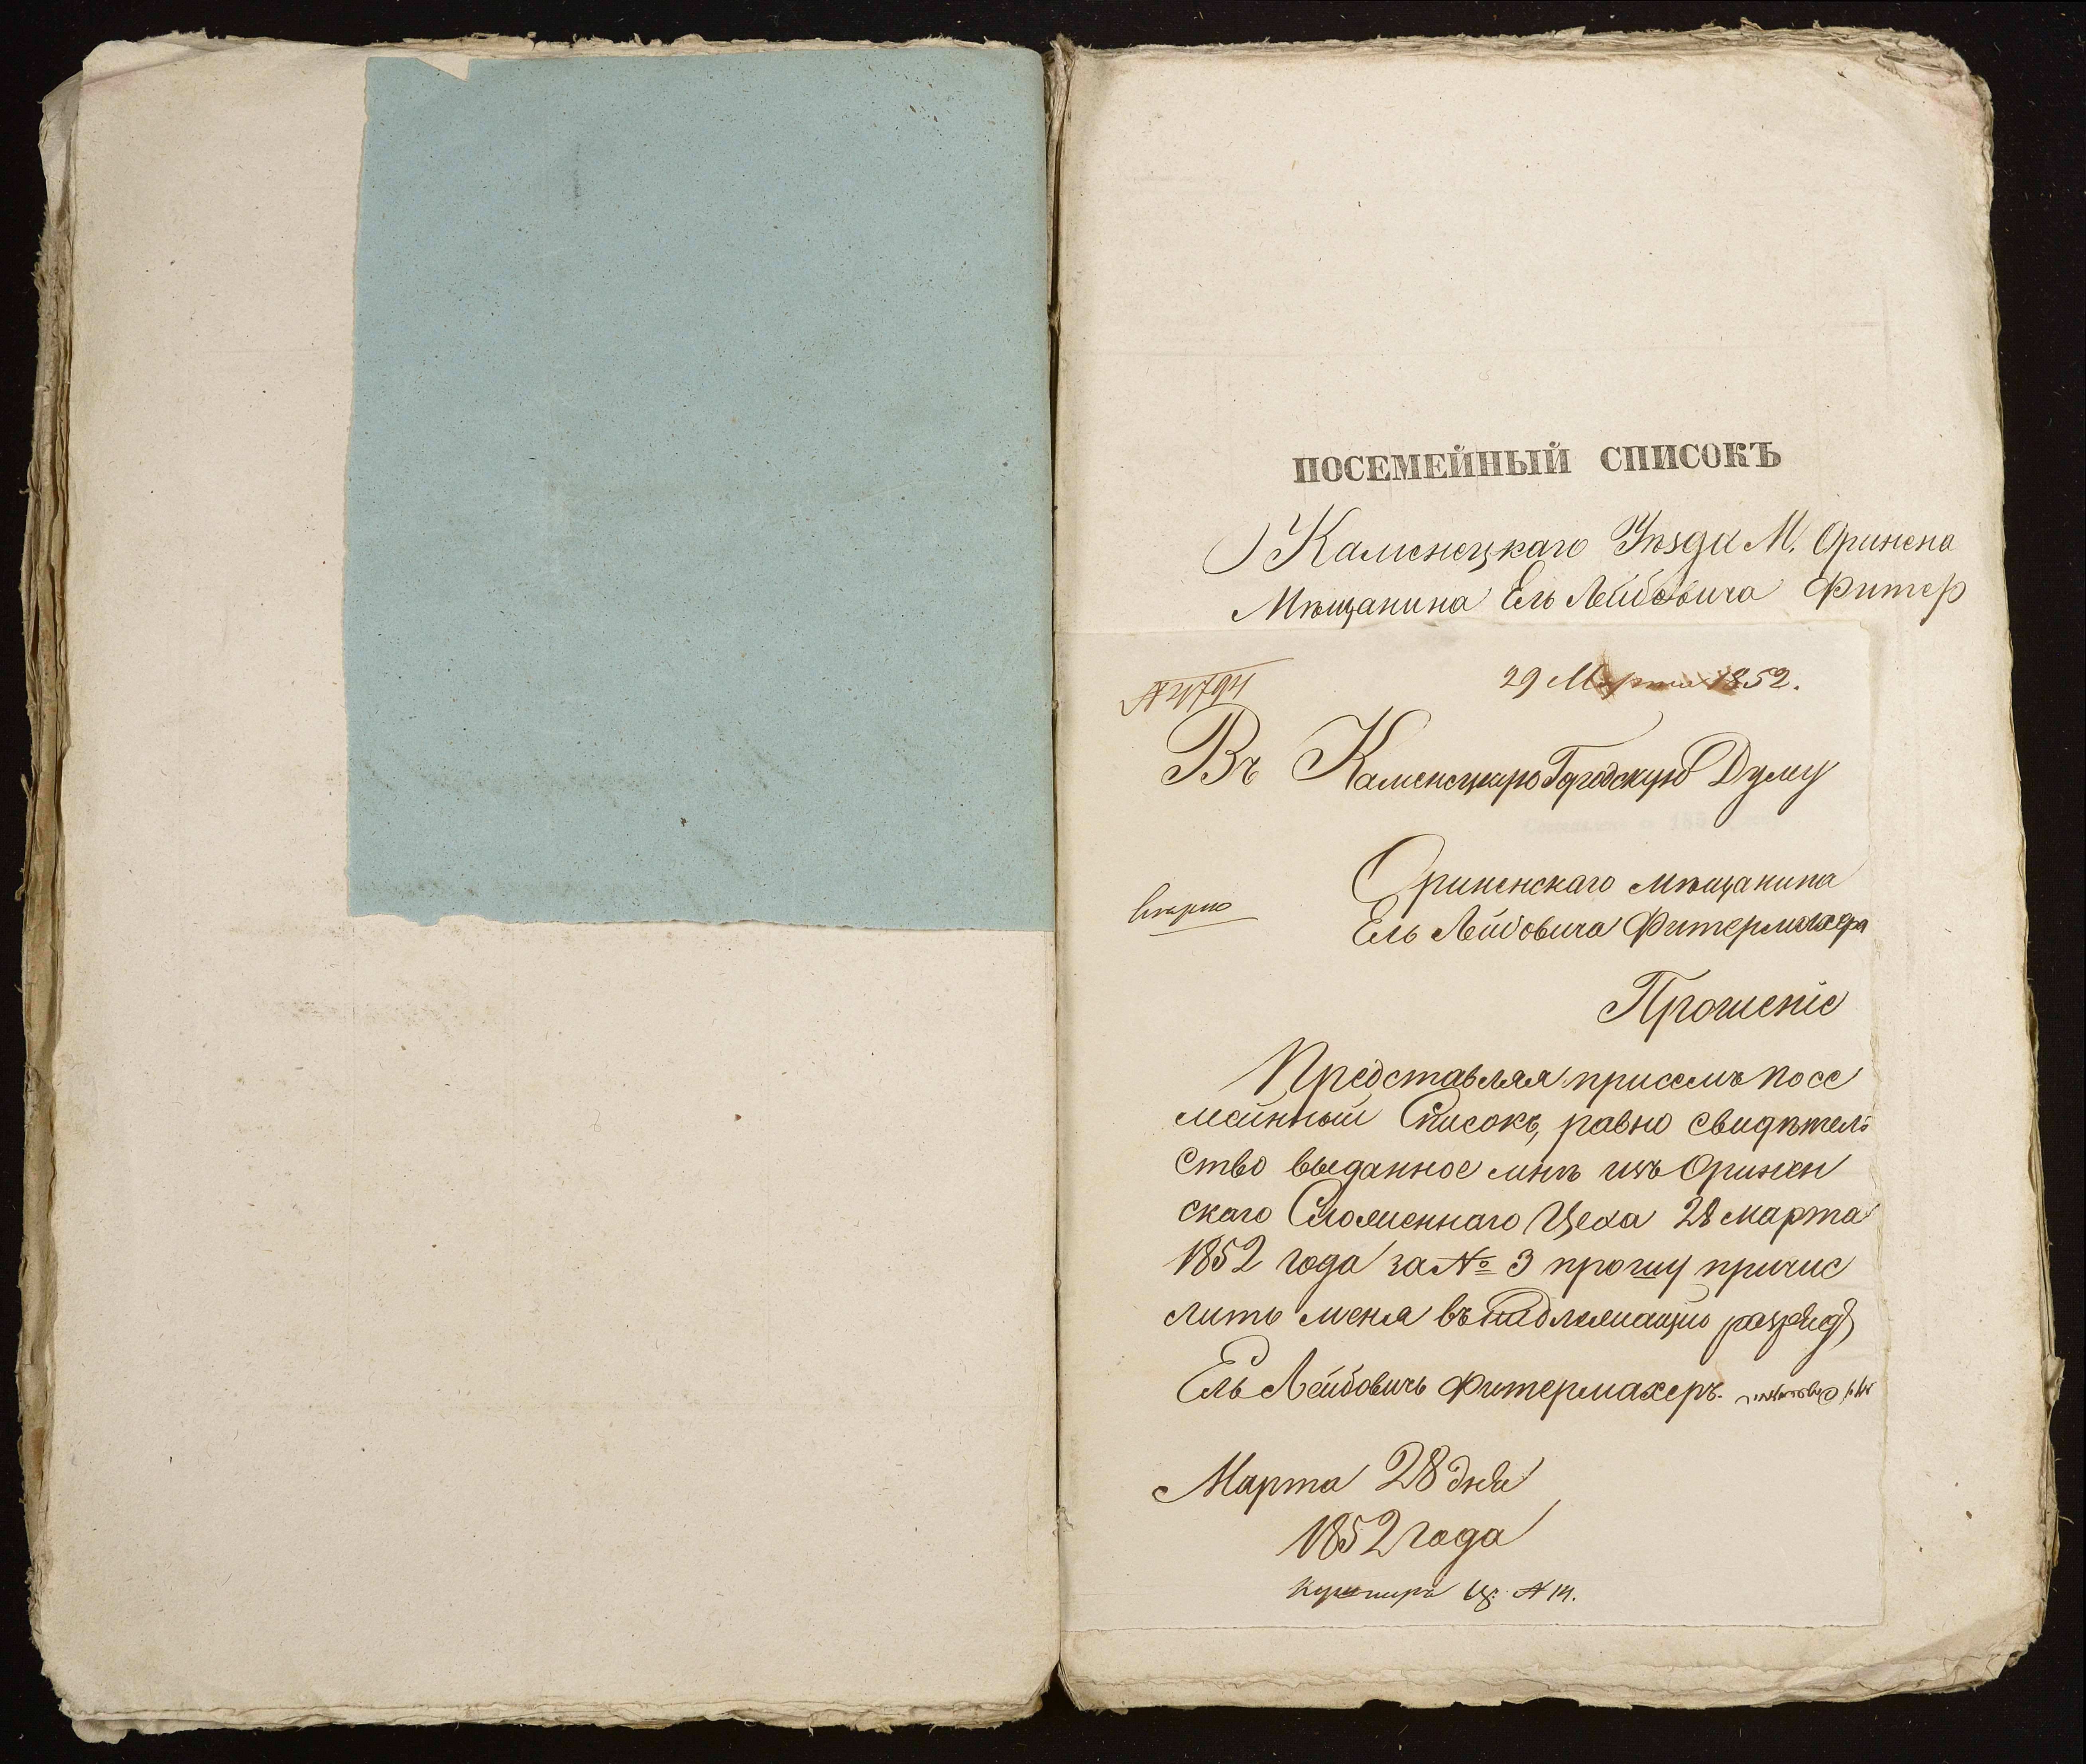 ПОСЕМЕЙНЫЙ СПИСОКЪ
Каменецкаго Уѣзда М. Оринена
Мѣщанина Ель Лейбовича Фитер
29 Марта 1852.
Въ Каменецкую Городскую Думу
Ориненскаго мѣщанина
Ель Лейбовича Фитермахера
Прошеніе
Представляя присемъ посе
мейный Списокъ, равно свидѣтель
ство выданное мнѣ изъ Оринен
скаго Сложеннаго Цеха 28 марта
1852 года за № 3 прошу причис
лить меня въ надлежащій разрядъ
Ель Лейбовичъ Фитермахеръ.
Марта 28 дня
1852 года